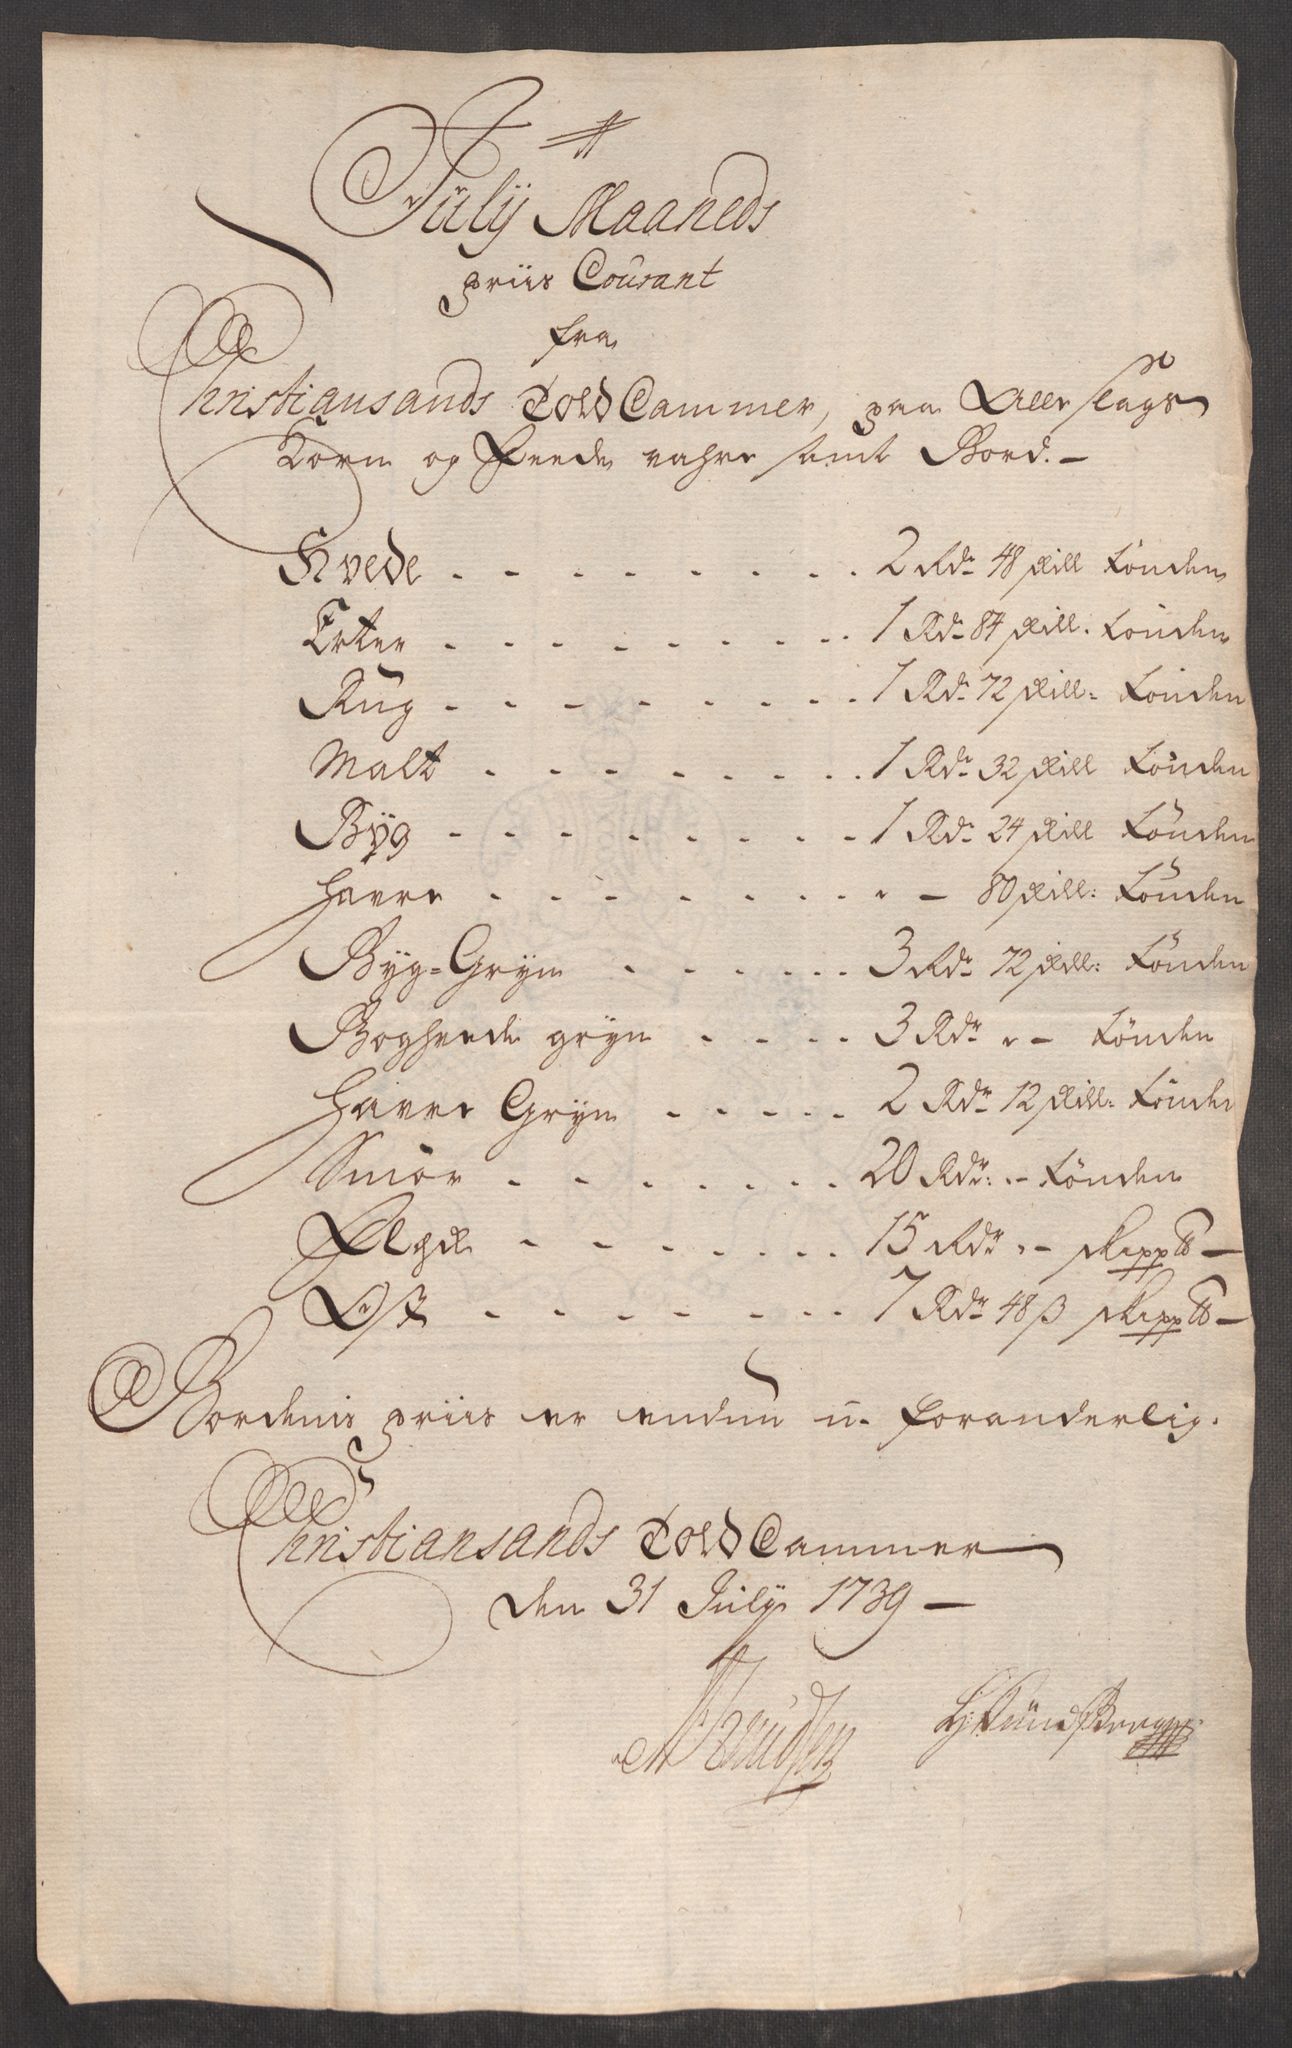 Julÿ Maaneds
priis Courant
fra
Christiansands Told Cammer, paa Alle slags
Korn og Feede vahre samt Bord. –
Hvede . . . . . . . . 2 Rdr 48 skill Tönden
Erter . . . . . . . . 1 Rdr 84 skill. Tönden
Rug . . . . . . . . 1 Rdr 72 skill: Tönden
Malt . . . . . . . . 1 Rdr 32 skill Tönden
Bÿg . . . . . . . . 1 Rdr 24 skill Tönden
Havre . . . . . . . . – 80 skill: Tönden
Byg=Gryn . . . . . 3 Rdr 72 skill: Tönden
Boghvede gryn . . . . 3 Rdr „ – Tönden
Havre Gryn . . . . . 2 Rdr 12 skill: Tönden
Smör . . . . . . . 20 Rdr: „ – Tönden
Flesk . . . . . . . 15 Rdr „ – skipp℔ –
Ost . . . . . . . 7 Rdr 48 β skipp℔ –
Bordenis priis er endnu u-foranderlig.
Christiansands Told Cammer
den 31 Julÿ 1739 –